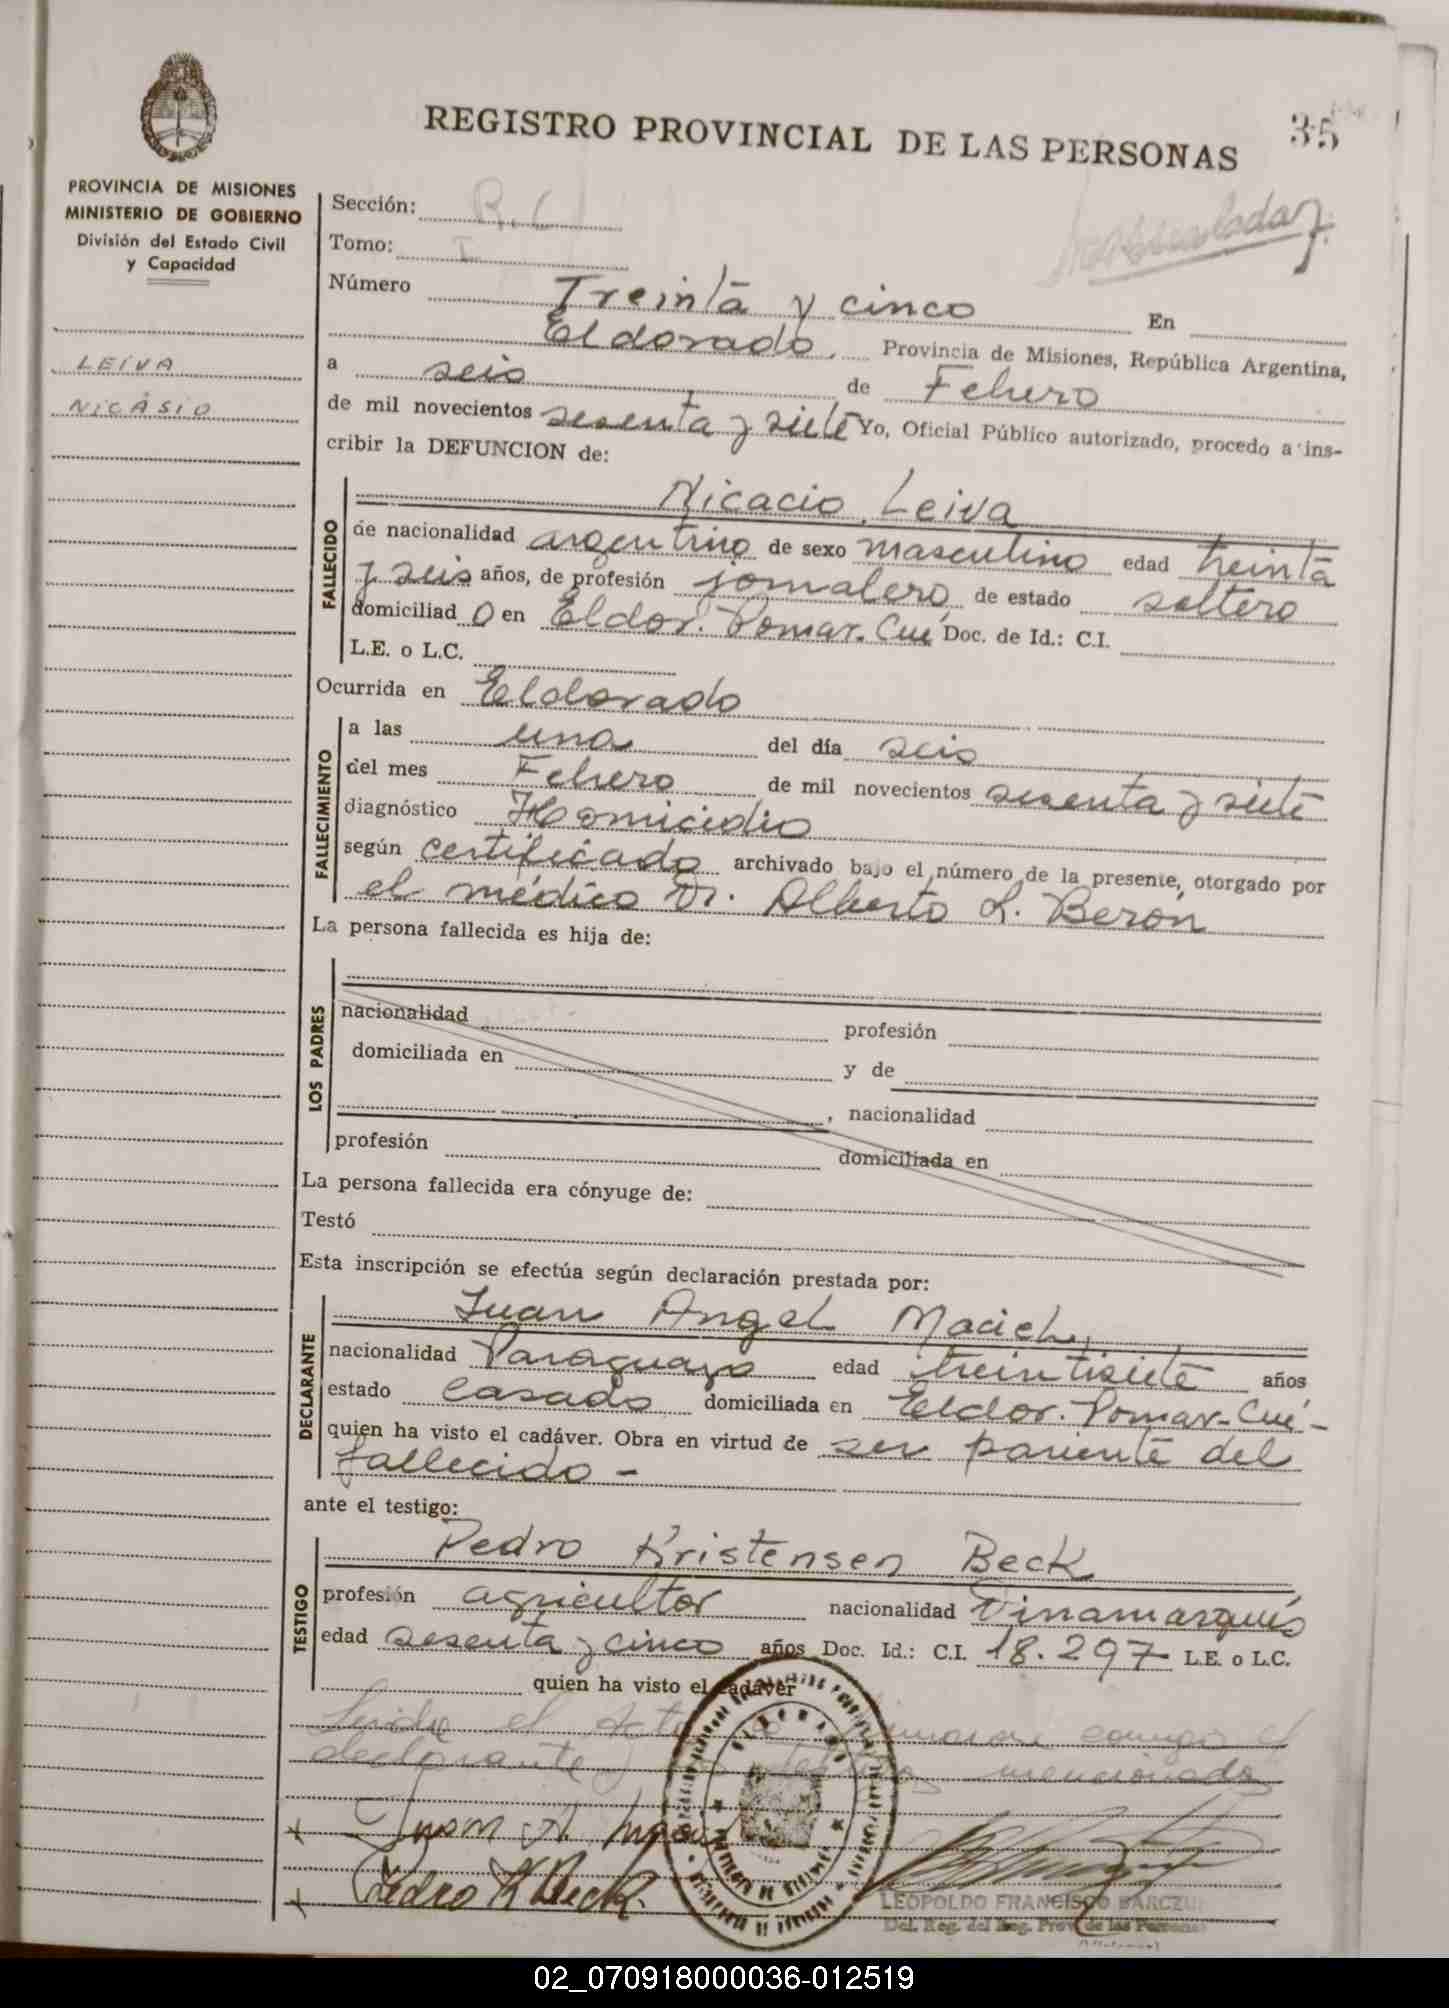 REGISTRO PROVINCIAL DE LAS PERSONAS
35
PROVINCIA DE MISIONES
MINISTERIO DE GOBIERNO
División del Estado Civil
y Capacidad
LEIVA
NICÁSIO
Sección:
Tomo: I
Número Treinta y cinco En
Eldorado, Provincia de Misiones, República Argentina,
a seis de Febrero
de mil novecientos sesenta y siete Yo, Oficial Público autorizado, procedo a ins-
cribir la DEFUNCION de:
FALLECIDO
Nicacio Leiva
de nacionalidad argentino de sexo masculino edad treinta
y seis años, de profesión jornalero, de estado soltero
domiciliad o en Eldor. Pomar-Cué Doc. de Id.: C.I.
L.E. o L.C.
Ocurrida en Eldorado
FALLECIMIENTO
a las una del día seis
del mes Febrero de mil novecientos sesenta y siete
diagnóstico Homicidio
según certificado archivado bajo el número de la presente, otorgado por
el médico Dr. Alberto L. Berón
La persona fallecida es hija de:
LOS PADRES
nacionalidad profesión
domiciliada en y de
, nacionalidad
profesión domiciliada en
La persona fallecida era cónyuge de:
Testó
Esta inscripción se efectúa según declaración prestada por:
DECLARANTE
Juan Angel Maciel,
nacionalidad Paraguayo edad treintisiete años
estado casado domiciliada en Eldor. Pomar-Cué-
quien ha visto el cadáver. Obra en virtud de ser pariente del
fallecido -
ante el testigo:
TESTIGO
Pedro Kristensen Beck
profesión agricultor nacionalidad Dinamarqués
edad sesenta y cinco años Doc. Id.: C.I. 18.297 L.E. o L.C.
quien ha visto el cadáver
el conmigo el
declarante y testigos mencionados
x Juan A.
x Pedro K Beck
ELDORADO
LEOPOLDO FRANCISCO BARCZU
Del. Reg. del Reg. Prov. de las Personas
02_070918000036-012519